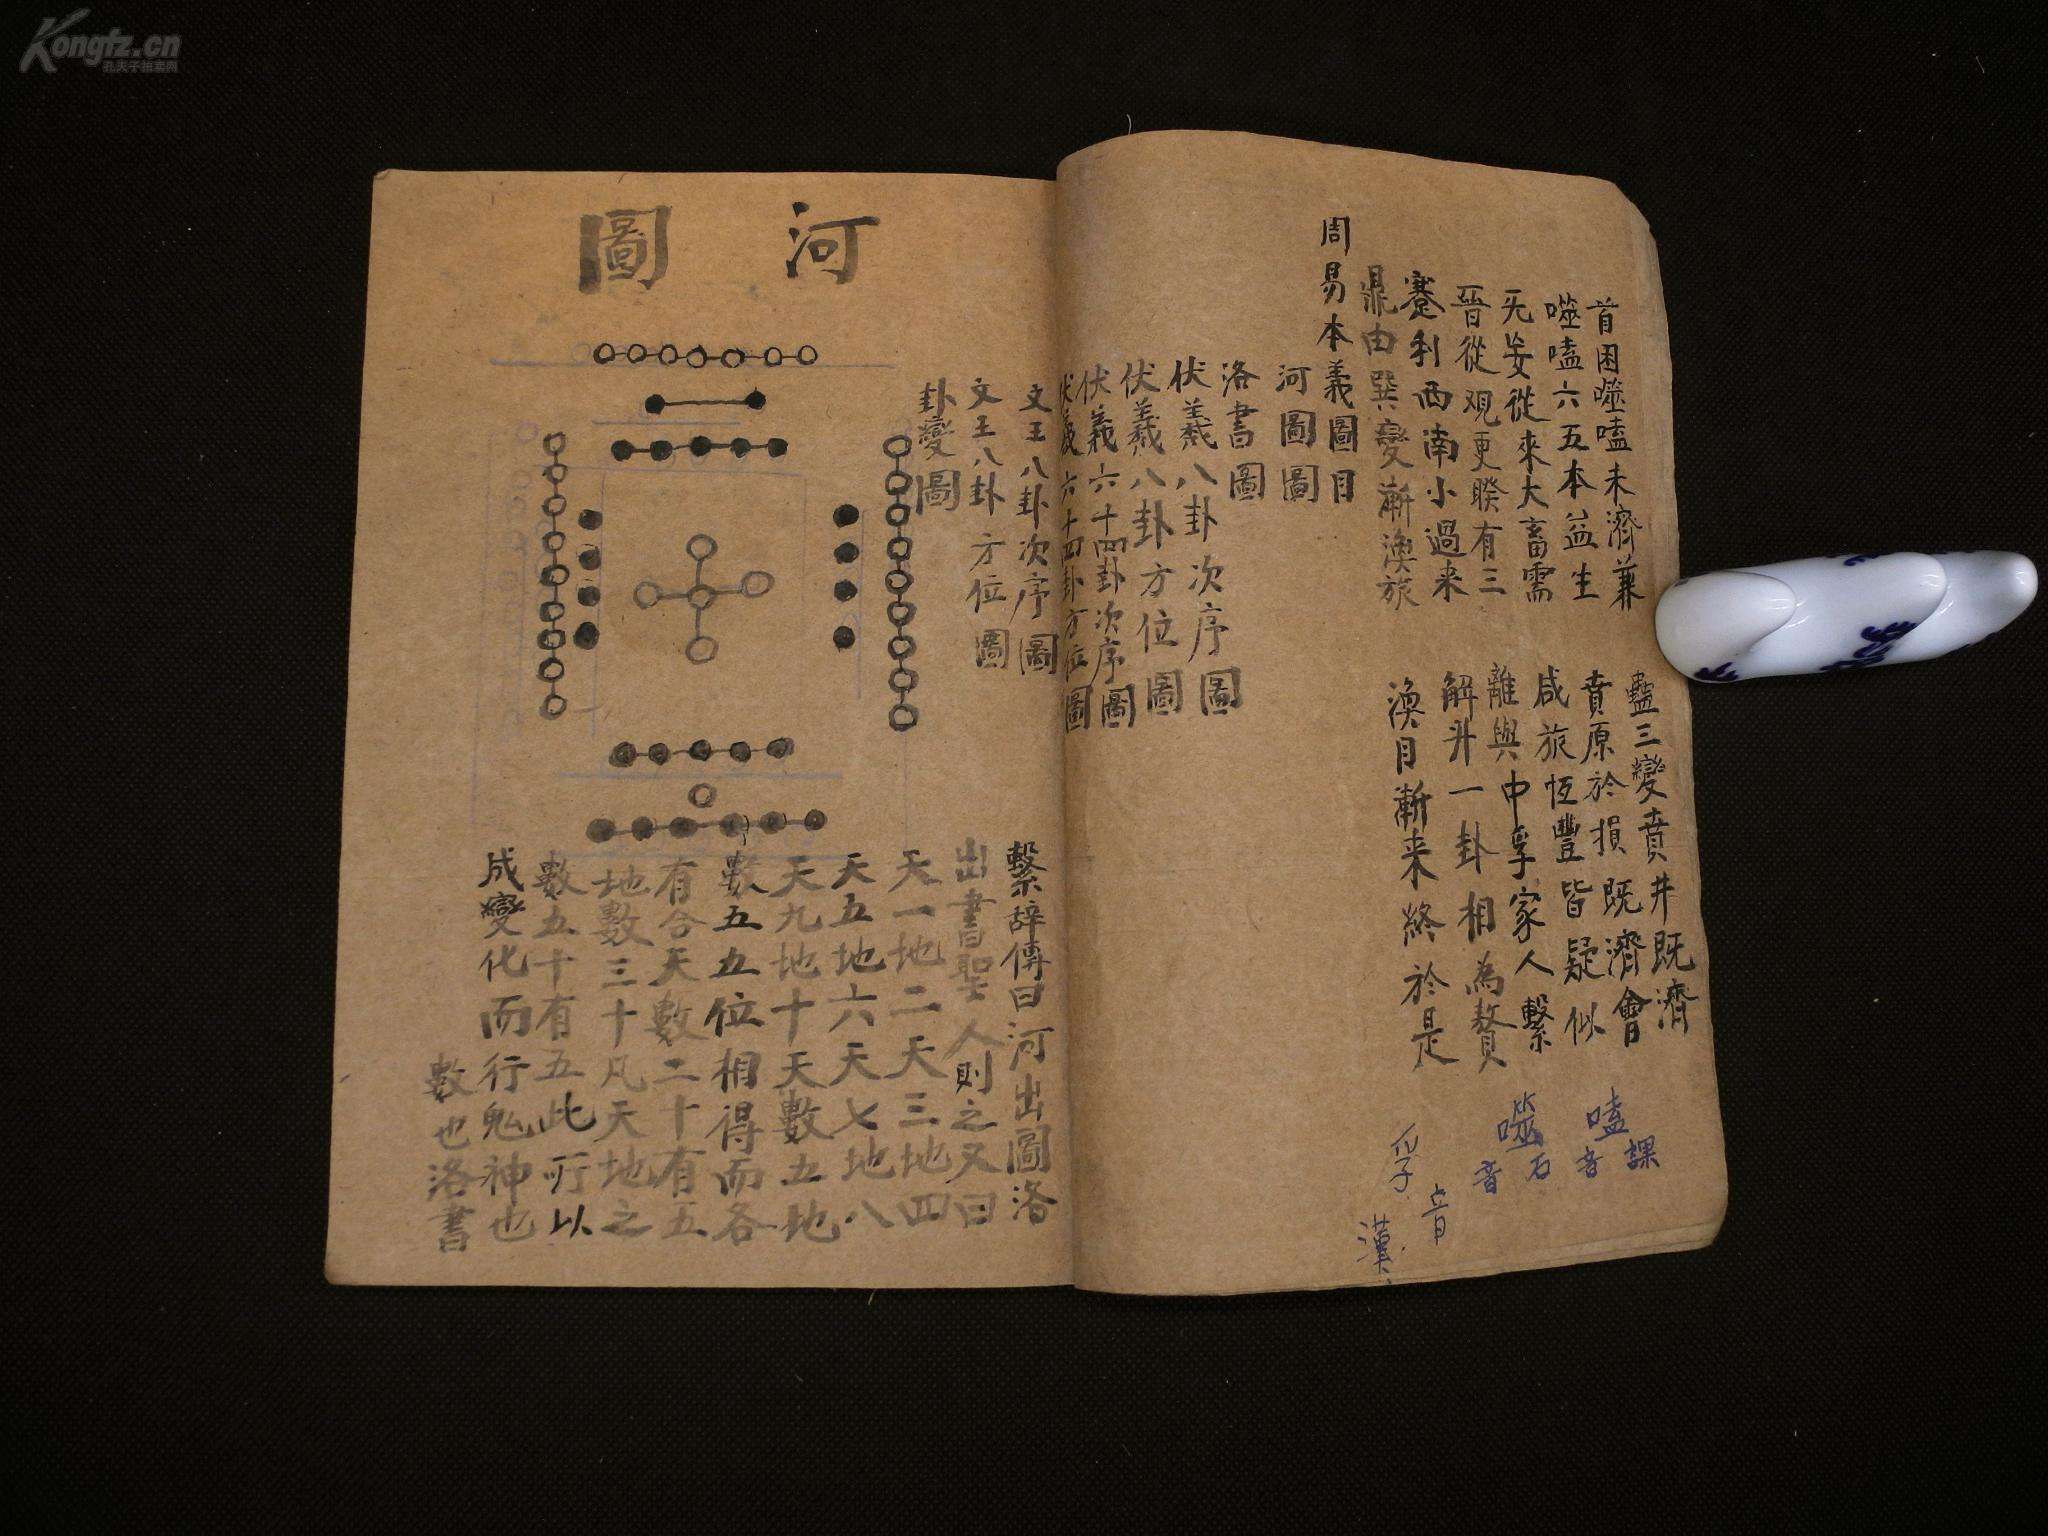 Kongfz.cn
孔夫子拍卖网
首困噬嗑未濟兼 蠱三變賁井既濟
噬嗑六五本益生 賁原於損既濟會
无妄從來大畜需 咸旅恆豐皆疑似
晉從观更睽有三 離與中孚家人繫
蹇利西南小過来 解升一卦相為贅
鼎由巽變漸渙旅 渙自漸来終於是
嗑音課
噬音石
孚音漢
周易本義圖目
河圖圖
洛書圖
伏羲八卦次序圖
伏羲八卦方位圖
伏羲六十四卦次序圖
伏羲六十四卦方位圖
文王八卦次序圖
文王八卦方位圖
卦變圖
河圖
繫辭傳曰河出圖洛
出書聖人則之又曰
天一地二天三地四
天五地六天七地八
天九地十天數五地
數五五位相得而各
有合天數二十有五
地數三十凡天地之
數五十有五此所以
成變化而行鬼神也
數也洛書